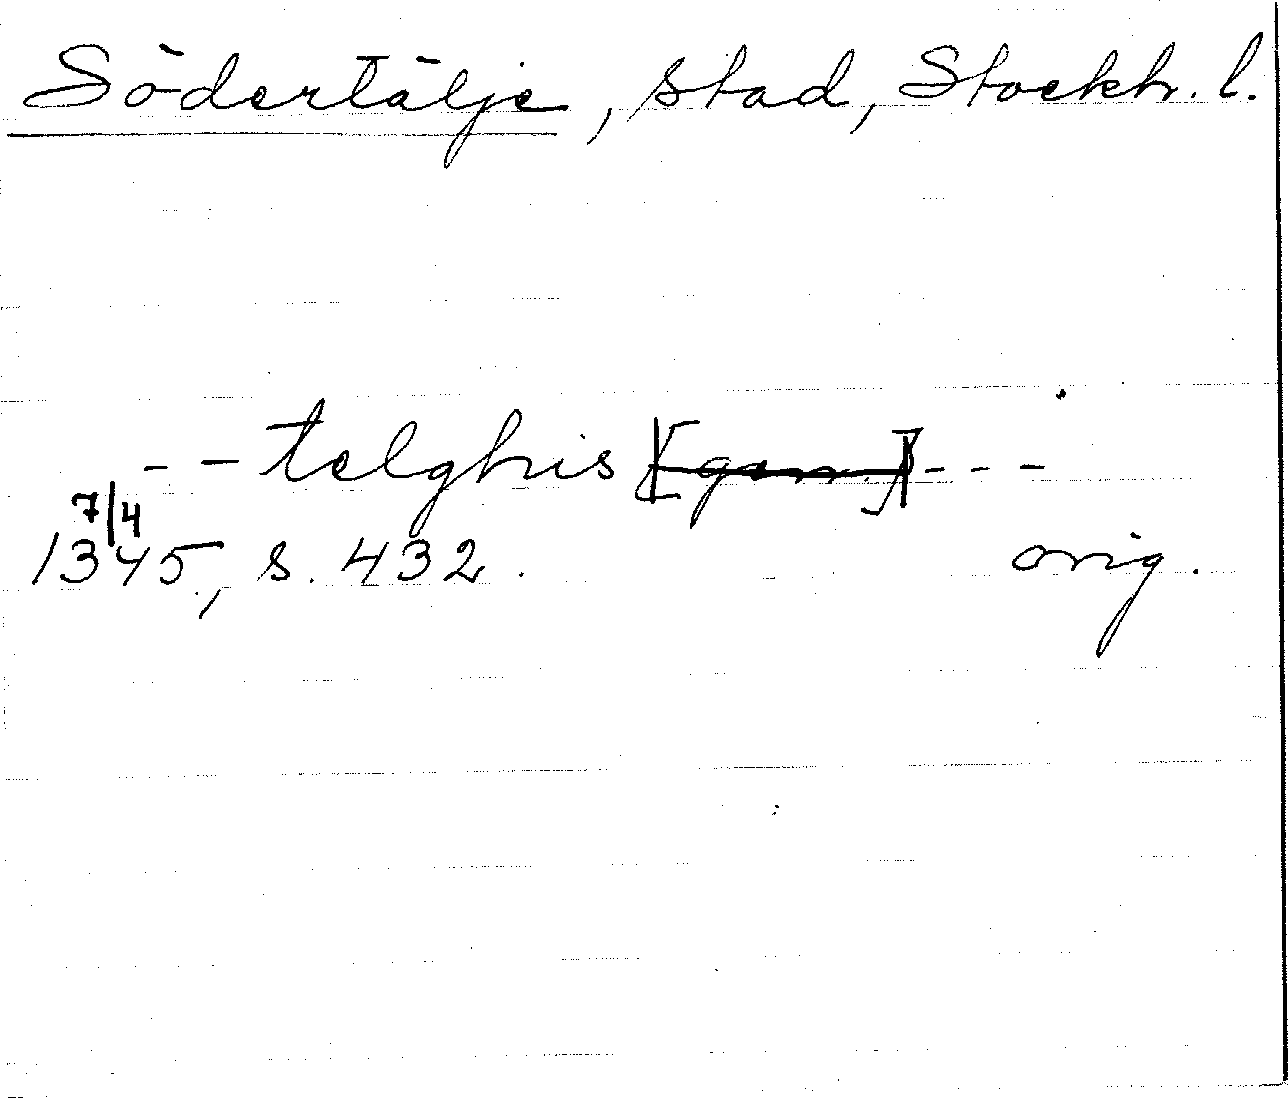 Södertälje, stad, Stockh. l.
-- telghis [gen.] ---
7/4
1345, s. 432. orig.